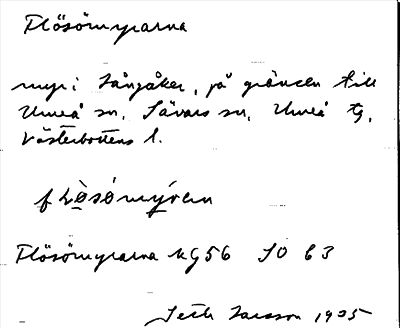 Flösömyrarna
myr i Långåker, på gränsen till
Umeå sn, Sävars sn, Umeå tg,
Västerbottens l.
Flösömyrarna kg 56 SO 63
Seth Larsson 1935